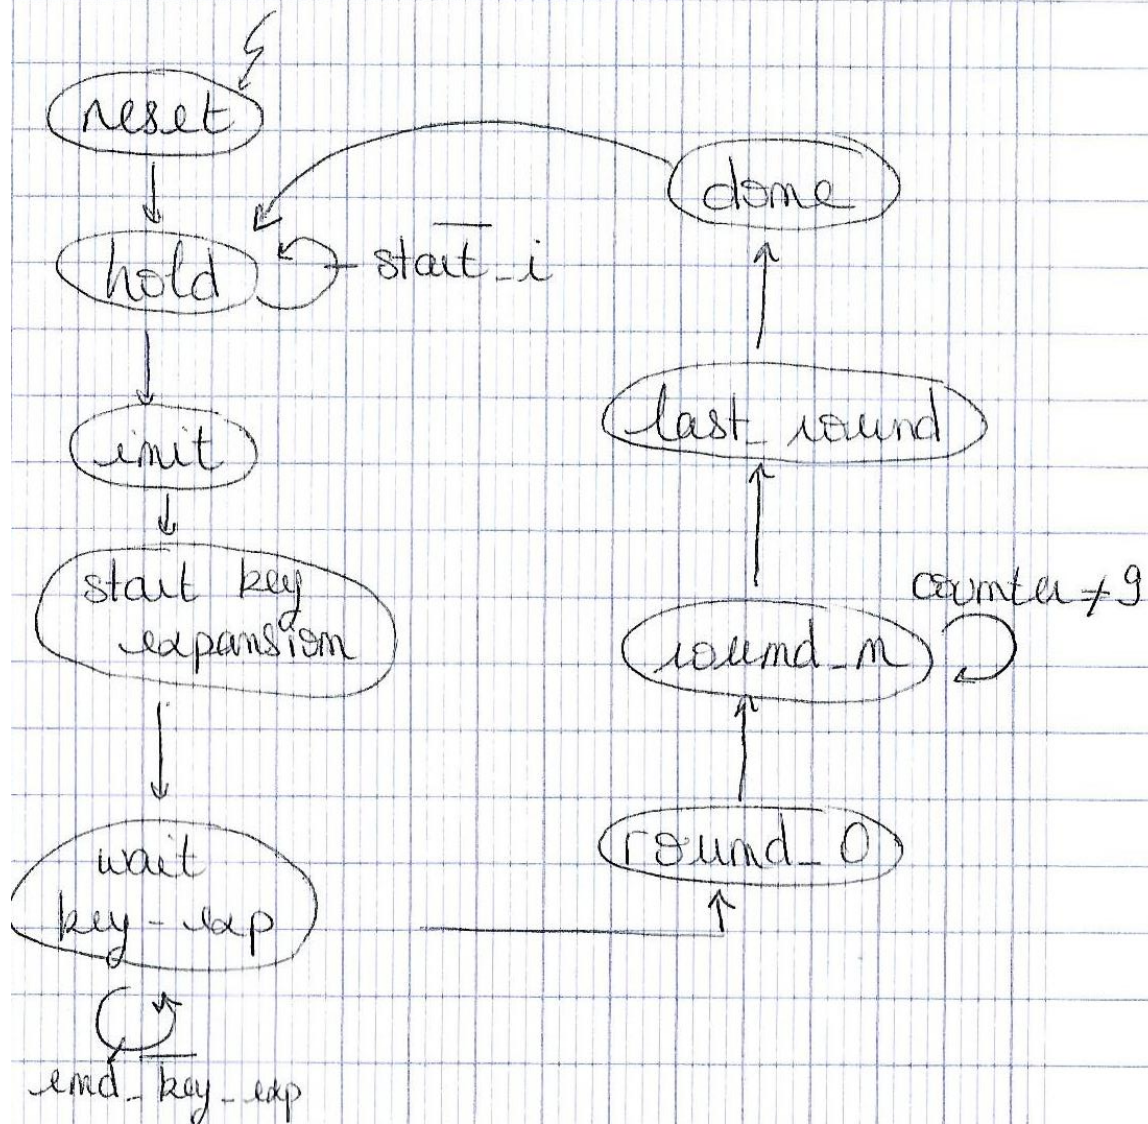 reset
hold
start_i
init
start key
expansion
wait
key-exp
end_key_exp
done
last_round
counter≠9
round_n
round_0